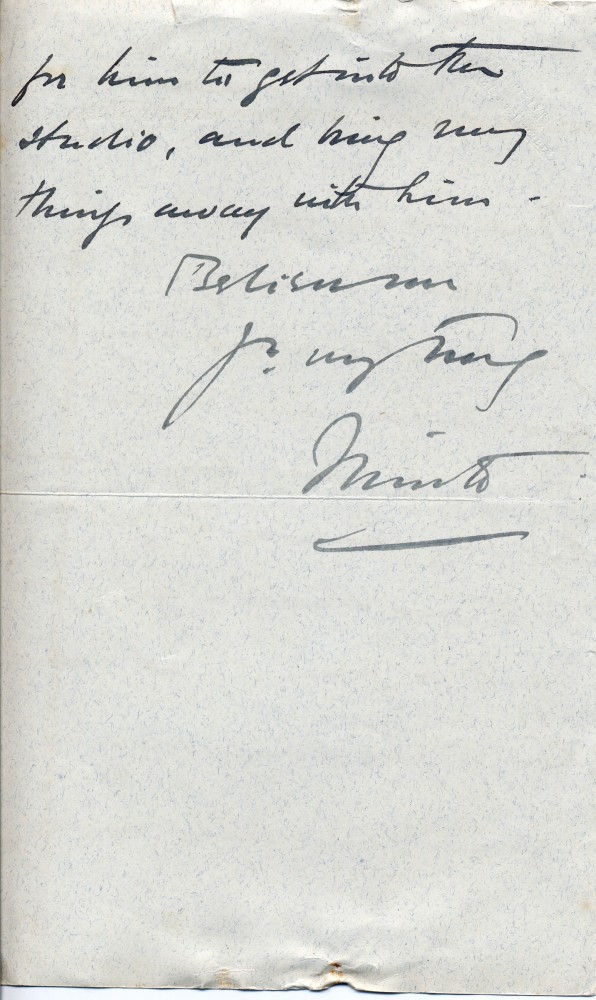 for him to get into the
studio, and bring my
things away with him -
Believe me
Yr. very truly
Minto